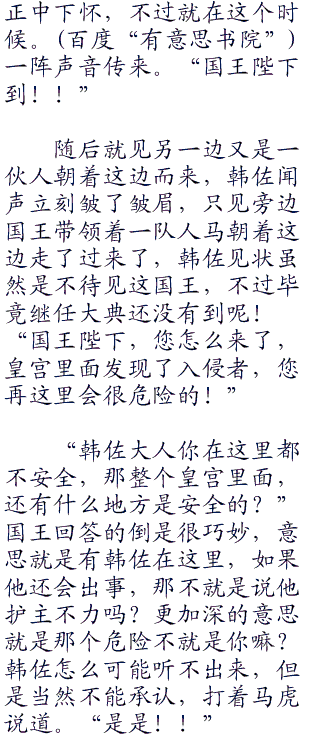 正中下怀，不过就在这个时
候。(百度“有意思书院”)
一阵声音传来。“国王陛下
到！！”
随后就见另一边又是一
伙人朝着这边而来，韩佐闻
声立刻皱了皱眉，只见旁边
国王带领着一队人马朝着这
边走了过来了，韩佐见状虽
然是不待见这国王，不过毕
竟继任大典还没有到呢！
“国王陛下，您怎么来了，
皇宫里面发现了入侵者，您
再这里会很危险的！”
“韩佐大人你在这里都
不安全，那整个皇宫里面，
还有什么地方是安全的？”
国王回答的倒是很巧妙，意
思就是有韩佐在这里，如果
他还会出事，那不就是说他
护主不力吗？更加深的意思
就是那个危险不就是你嘛？
韩佐怎么可能听不出来，但
是当然不能承认，打着马虎
说道。“是是！！”